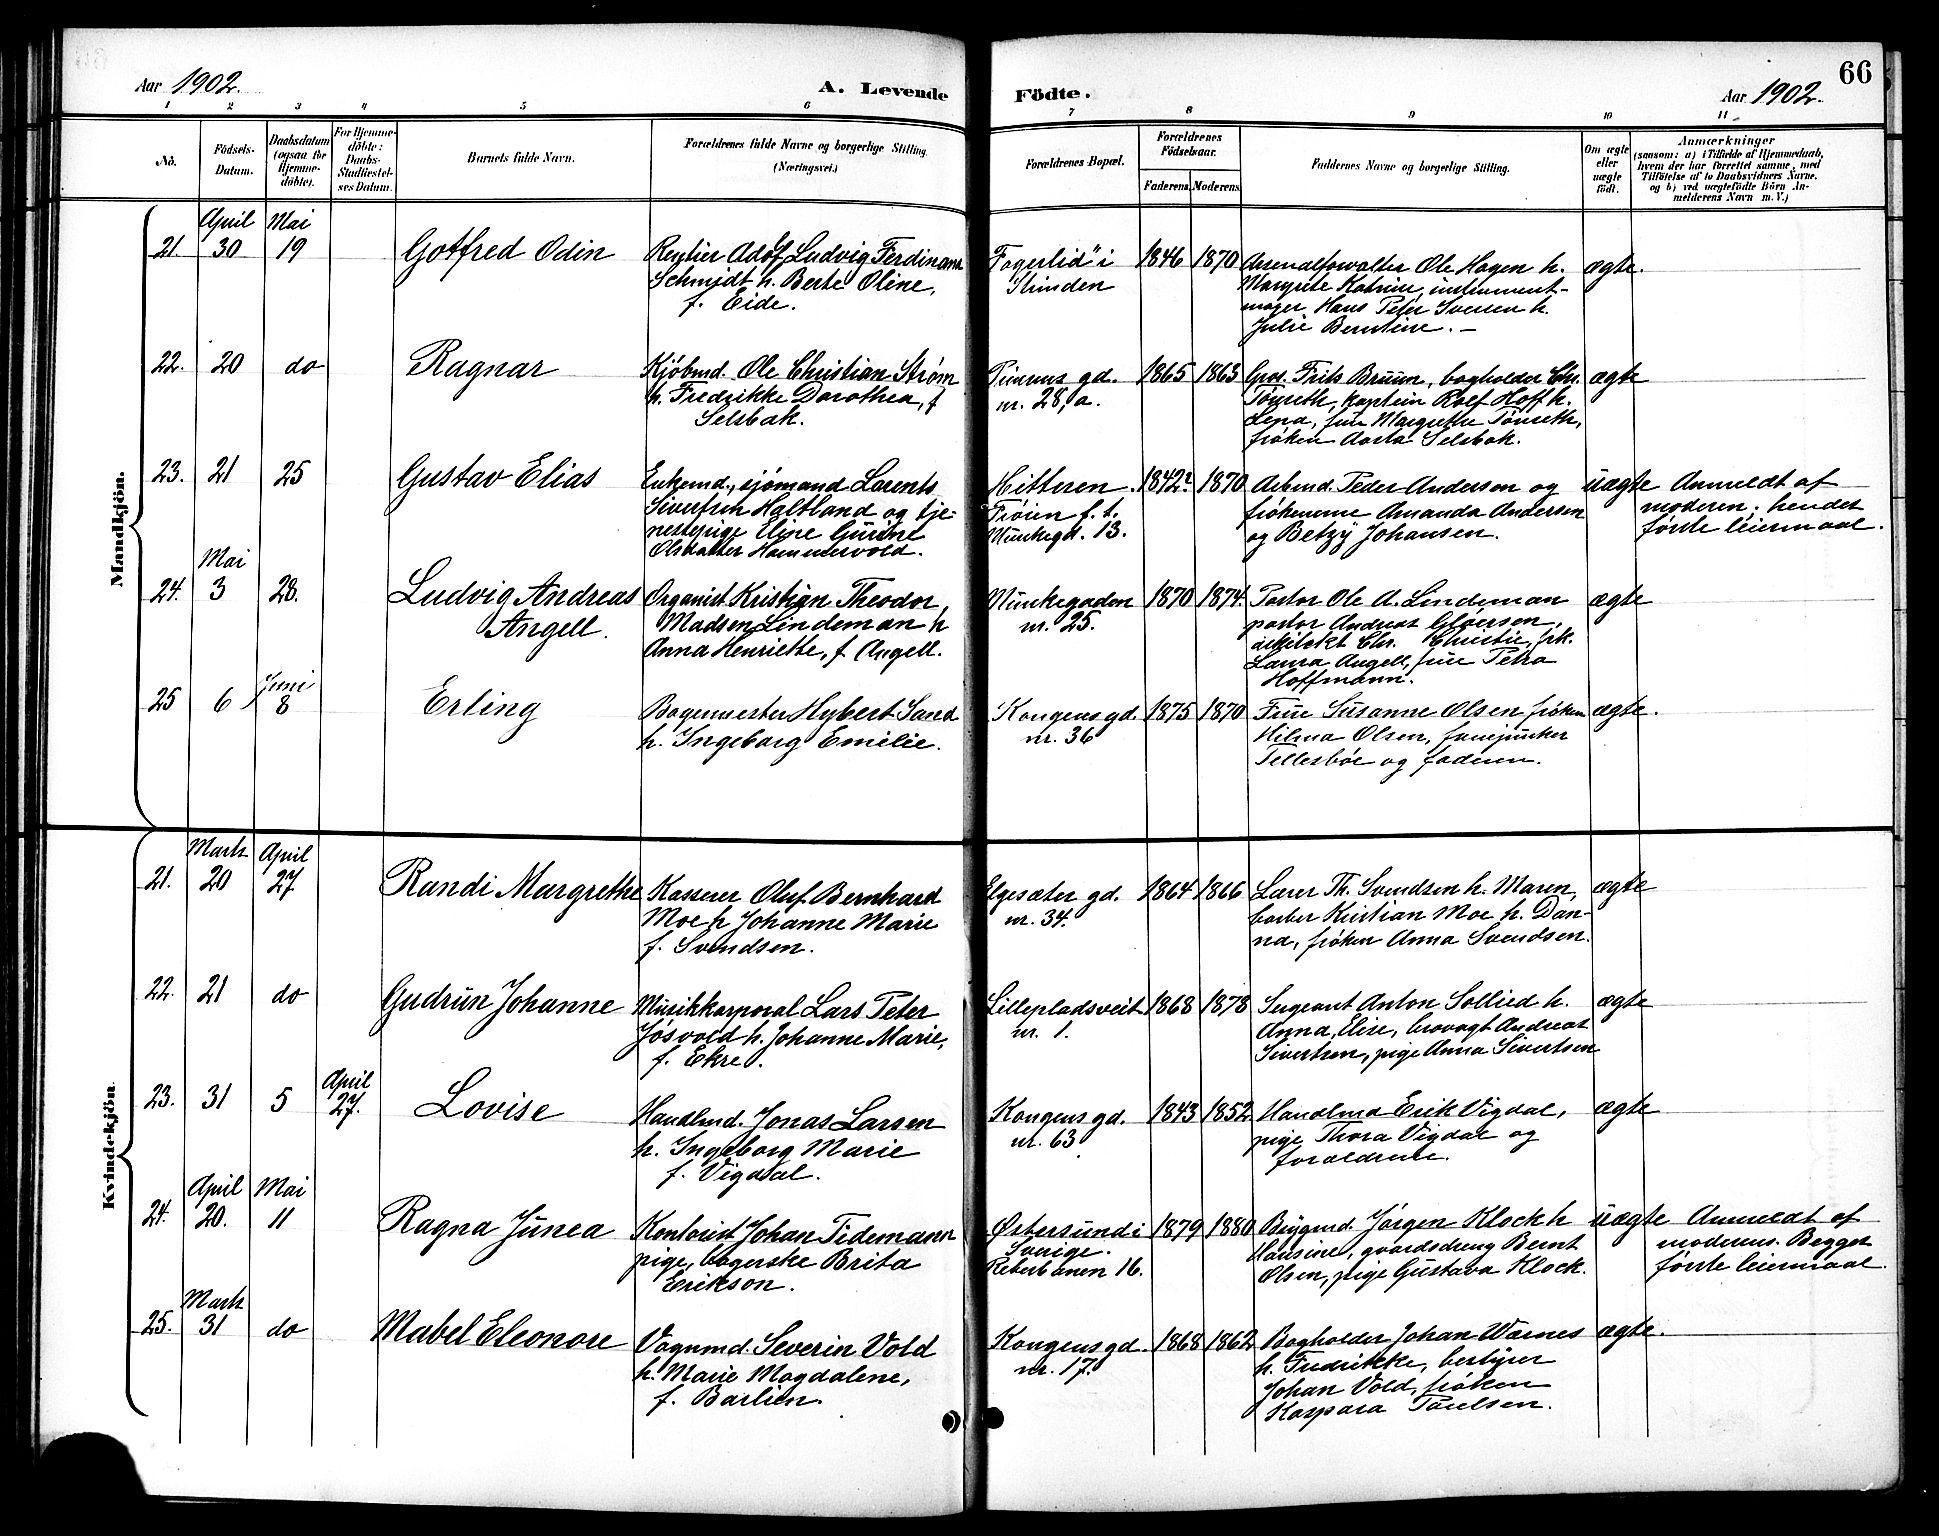 66
Aar 1902.
A. Levende
Födte.
Aar 1902.
1 2 3 4 5 6 7 8 9 10 11
No.
Födsels-
Datum.
Daabsdatum
(ogsaa for
Hjemme-
döbte).
For Hjemme-
döbte:
Daabs-
Stadfæstel-
ses Datum.
Barnets fulde Navn.
Forældrenes fulde Navne og borgerlige Stilling.
(Næringsvei.)
Forældrenes Bopæl.
Forældrenes
Födselsaar.
Faderens.
Moderens.
Faddernes Navne og borgerlige Stilling.
Om ægte
eller
uægte
født.
Anmærkninger
(saasom: a) i Tilfælde af Hjemmedaab,
hvem der har forrettet samme, med
Tilföielse af to Daabsvidners Navne,
og b) ved uægtefödte Börn An-
melderens Navn m. V.)
Mandkjön.
April Mai
21. 30 19 Gotfred Odin
Rentier Adolf Ludvig Ferdinand
Schmidt h. Berte Oline,
f. Eide.
Fagerlid" i
Strinden
1846 1870
Arsenalforvalter Ole Hagen h.
Margrete Katrine, instrument-
mager Hans Peter Iversen h.
Julie Berntine. –
ægte.
22. 20 do Ragnar
Kjöbmd. Ole Christian Strøm
h. Fredrikke Dorothea, f
Selsbak.
gd.
nr. 28, a.
1865 1863
Gros. Frits Bruun, bogholder Chr.
Tønseth, kaptein Rolf Hoff h.
Lena, frue Margrethe Tønseth,
frøken Aasta Selsbak.
ægte
23. 21 25 Gustav Elias
Enkemd., sjømand Lorents
Sivertsen Haltland og tje-
nestepige Eline Gurine
Olsdatter Hammervold.
Hitteren.
Frøien f. t.
Munkegd. 13.
1842? 1870
Arbmd. Peder Andersen og
frøknerne Amanda Andersen
og Betzy Johansen.
uægte
Anmeldt af
moderen; hendes
første leiermaal.
Mai
24. 3 28. Ludvig Andreas
Angell.
Organist Kristian Theodor
Madsen Lindeman h
Anna Henriette, f. Angell.
Munkegaden
nr. 25.
1870 1874.
Pastor Ole A. Lindeman
pastor Andreas Gløersen,
arkitekt Chr. Christie, frk.
Laura Angell, frue Petra
Hoffmann.
ægte
Juni
25 6 8 Erling
Bagermester Hybert Sand
h. Ingeborg Emilie.
Kongens gd.
nr. 36
1875 1870
Frue Susanne Olsen frøken
Hilma Olsen, fanejunker
Tellesbøe og faderen.
ægte.
Kvindekjön.
Marts April
21. 20 27 Randi Margrethe
Kasserer Oluf Bernhard
Moe h Johanne Marie
f. Svendsen.
Elgesæter gd.
nr. 34.
1864 1866
Lærer Th. Svendsen h. Maren,
barber Kristian Moe h. Dan-
na, frøken Anna Svendsen.
ægte
22. 21 do Gudrun Johanne
Musikkorporal Lars Peter
Jøsvold h. Johanne Marie,
f. Ekre.
Lillepladsveit
nr. 1.
1868 1878
Sergeant Anton Sollied h.
Anna Elise, brovagt Andreas
Sivertsen, pige Anna Sivertsen
ægte
April
23. 31 5 27. Lovise
Handlmd. Jonas Larsen
h. Ingeborg Marie
f. Vigdal.
Kongens gd.
nr. 63
1843 1852
Handlmd Erik Vigdal,
pige Thora Vigdal og
forældrene.
ægte
April Mai
24. 20. 11 Ragna Junea
Kontorist Johan Tidemann
pige, bagerske Brita
Erikson.
Østersund i
Sverige.
Reberbanen 16.
1879 1880
Brygmd. Jørgen Klock h
Hansine, gaardsdreng Bernt
Olsen, pige Gustava Klock.
uægte
Anmeldt af
moderen. Begges
første leiermaal.
Marts
25. 31 do Mabel Eleonore
Vognmd. Severin Vold
h. Marie Magdalene,
f. Barlien.
Kongens gd.
nr. 17.
1868 1862
Bogholder Johan Wærnes
h. Fredrikke, bestyrer
Johan Vold, frøken
Kaspara Paulsen.
ægte.